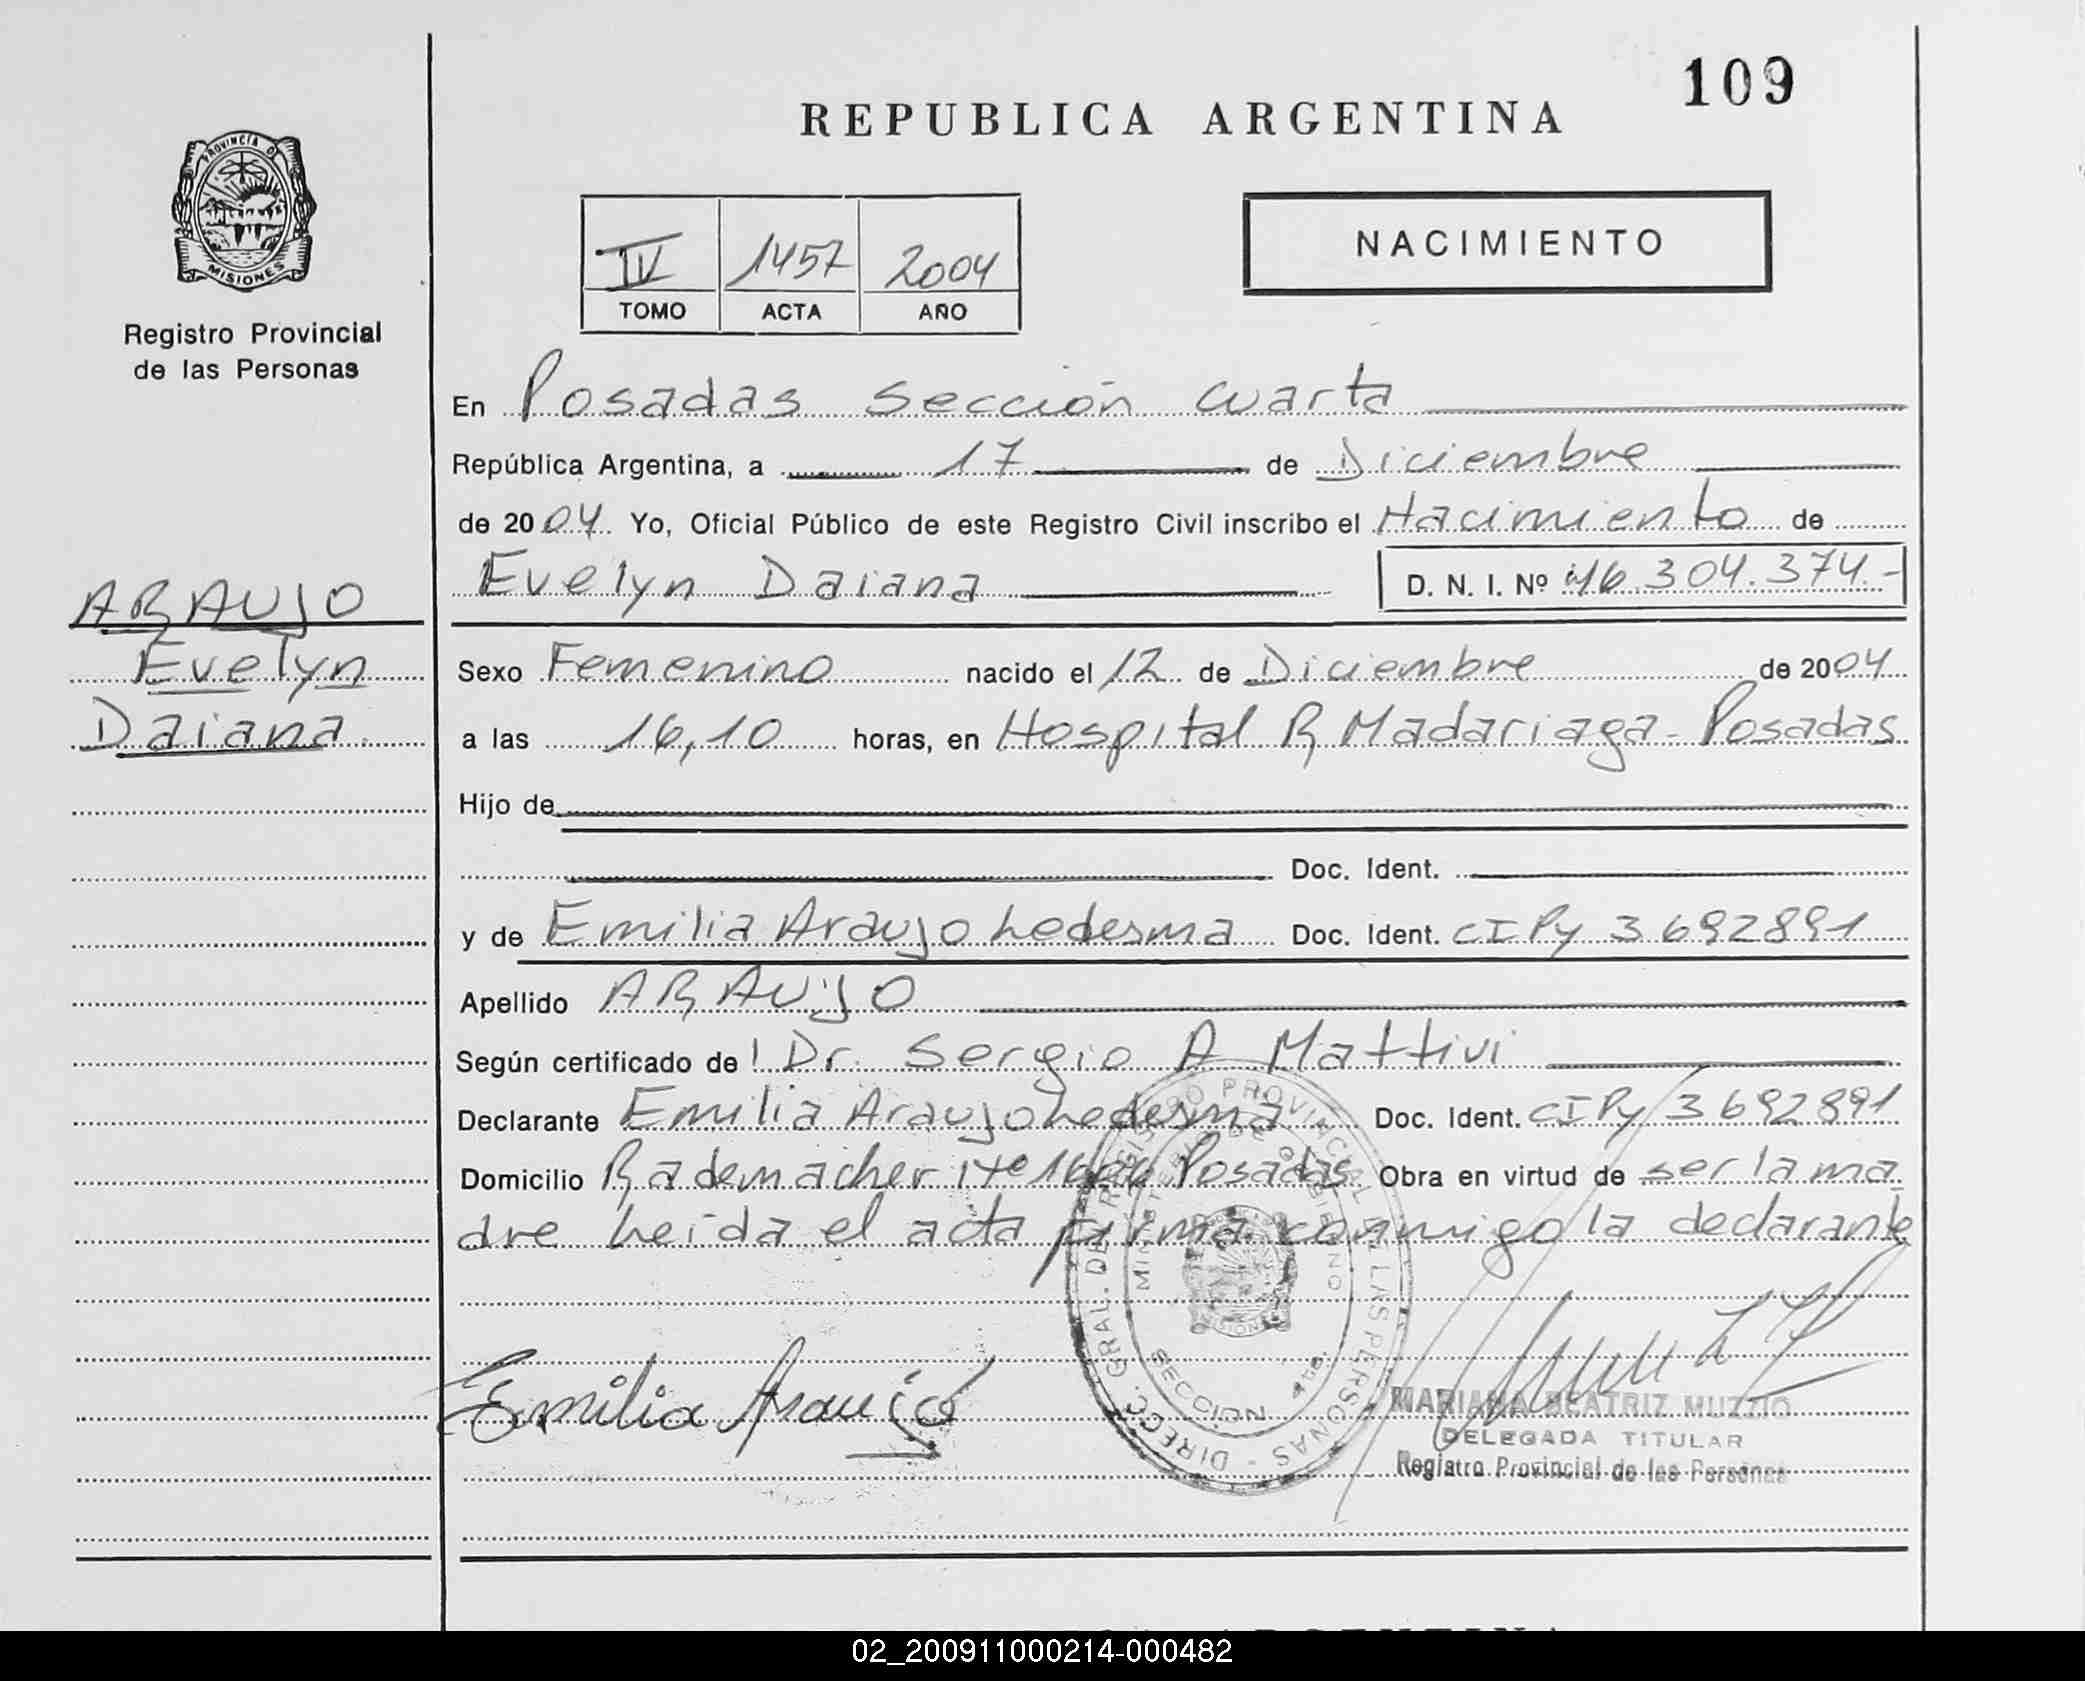 109
REPUBLICA ARGENTINA
PROVINCIA DE
MISIONES
Registro Provincial
de las Personas
IV 1457 2004
TOMO ACTA AÑO
NACIMIENTO
En Posadas sección cuarta
República Argentina, a 17 de Diciembre
de 2004 Yo, Oficial Público de este Registro Civil inscribo el Nacimiento de
Evelyn Daiana D. N. I. Nº 46.304.374.-
ARAUJO
Evelyn
Daiana
Sexo Femenino nacido el 12 de Diciembre de 2004
a las 16,10 horas, en Hospital R Madariaga - Posadas
Hijo de
Doc. Ident.
y de Emilia Araujo Ledesma Doc. Ident. CI Py 3692891
Apellido ARAUJO
Según certificado de Dr. Sergio A Mattivi
Declarante Emilia Araujo Ledesma Doc. Ident. CI Py 3692891
Domicilio Rademacher Nº Posadas Obra en virtud de ser la ma
dre Leída el acta firma conmigo la declarante
DIRECC. GRAL. DE REGISTRO PROVINCIAL DE LAS PERSONAS -
MINISTERIO DE GOBIERNO
MISIONES
SECCION 4ta.
Emilia Araujo
MARIANA BEATRIZ MUZZIO
DELEGADA TITULAR
Registro Provincial de las Personas
02_200911000214-000482